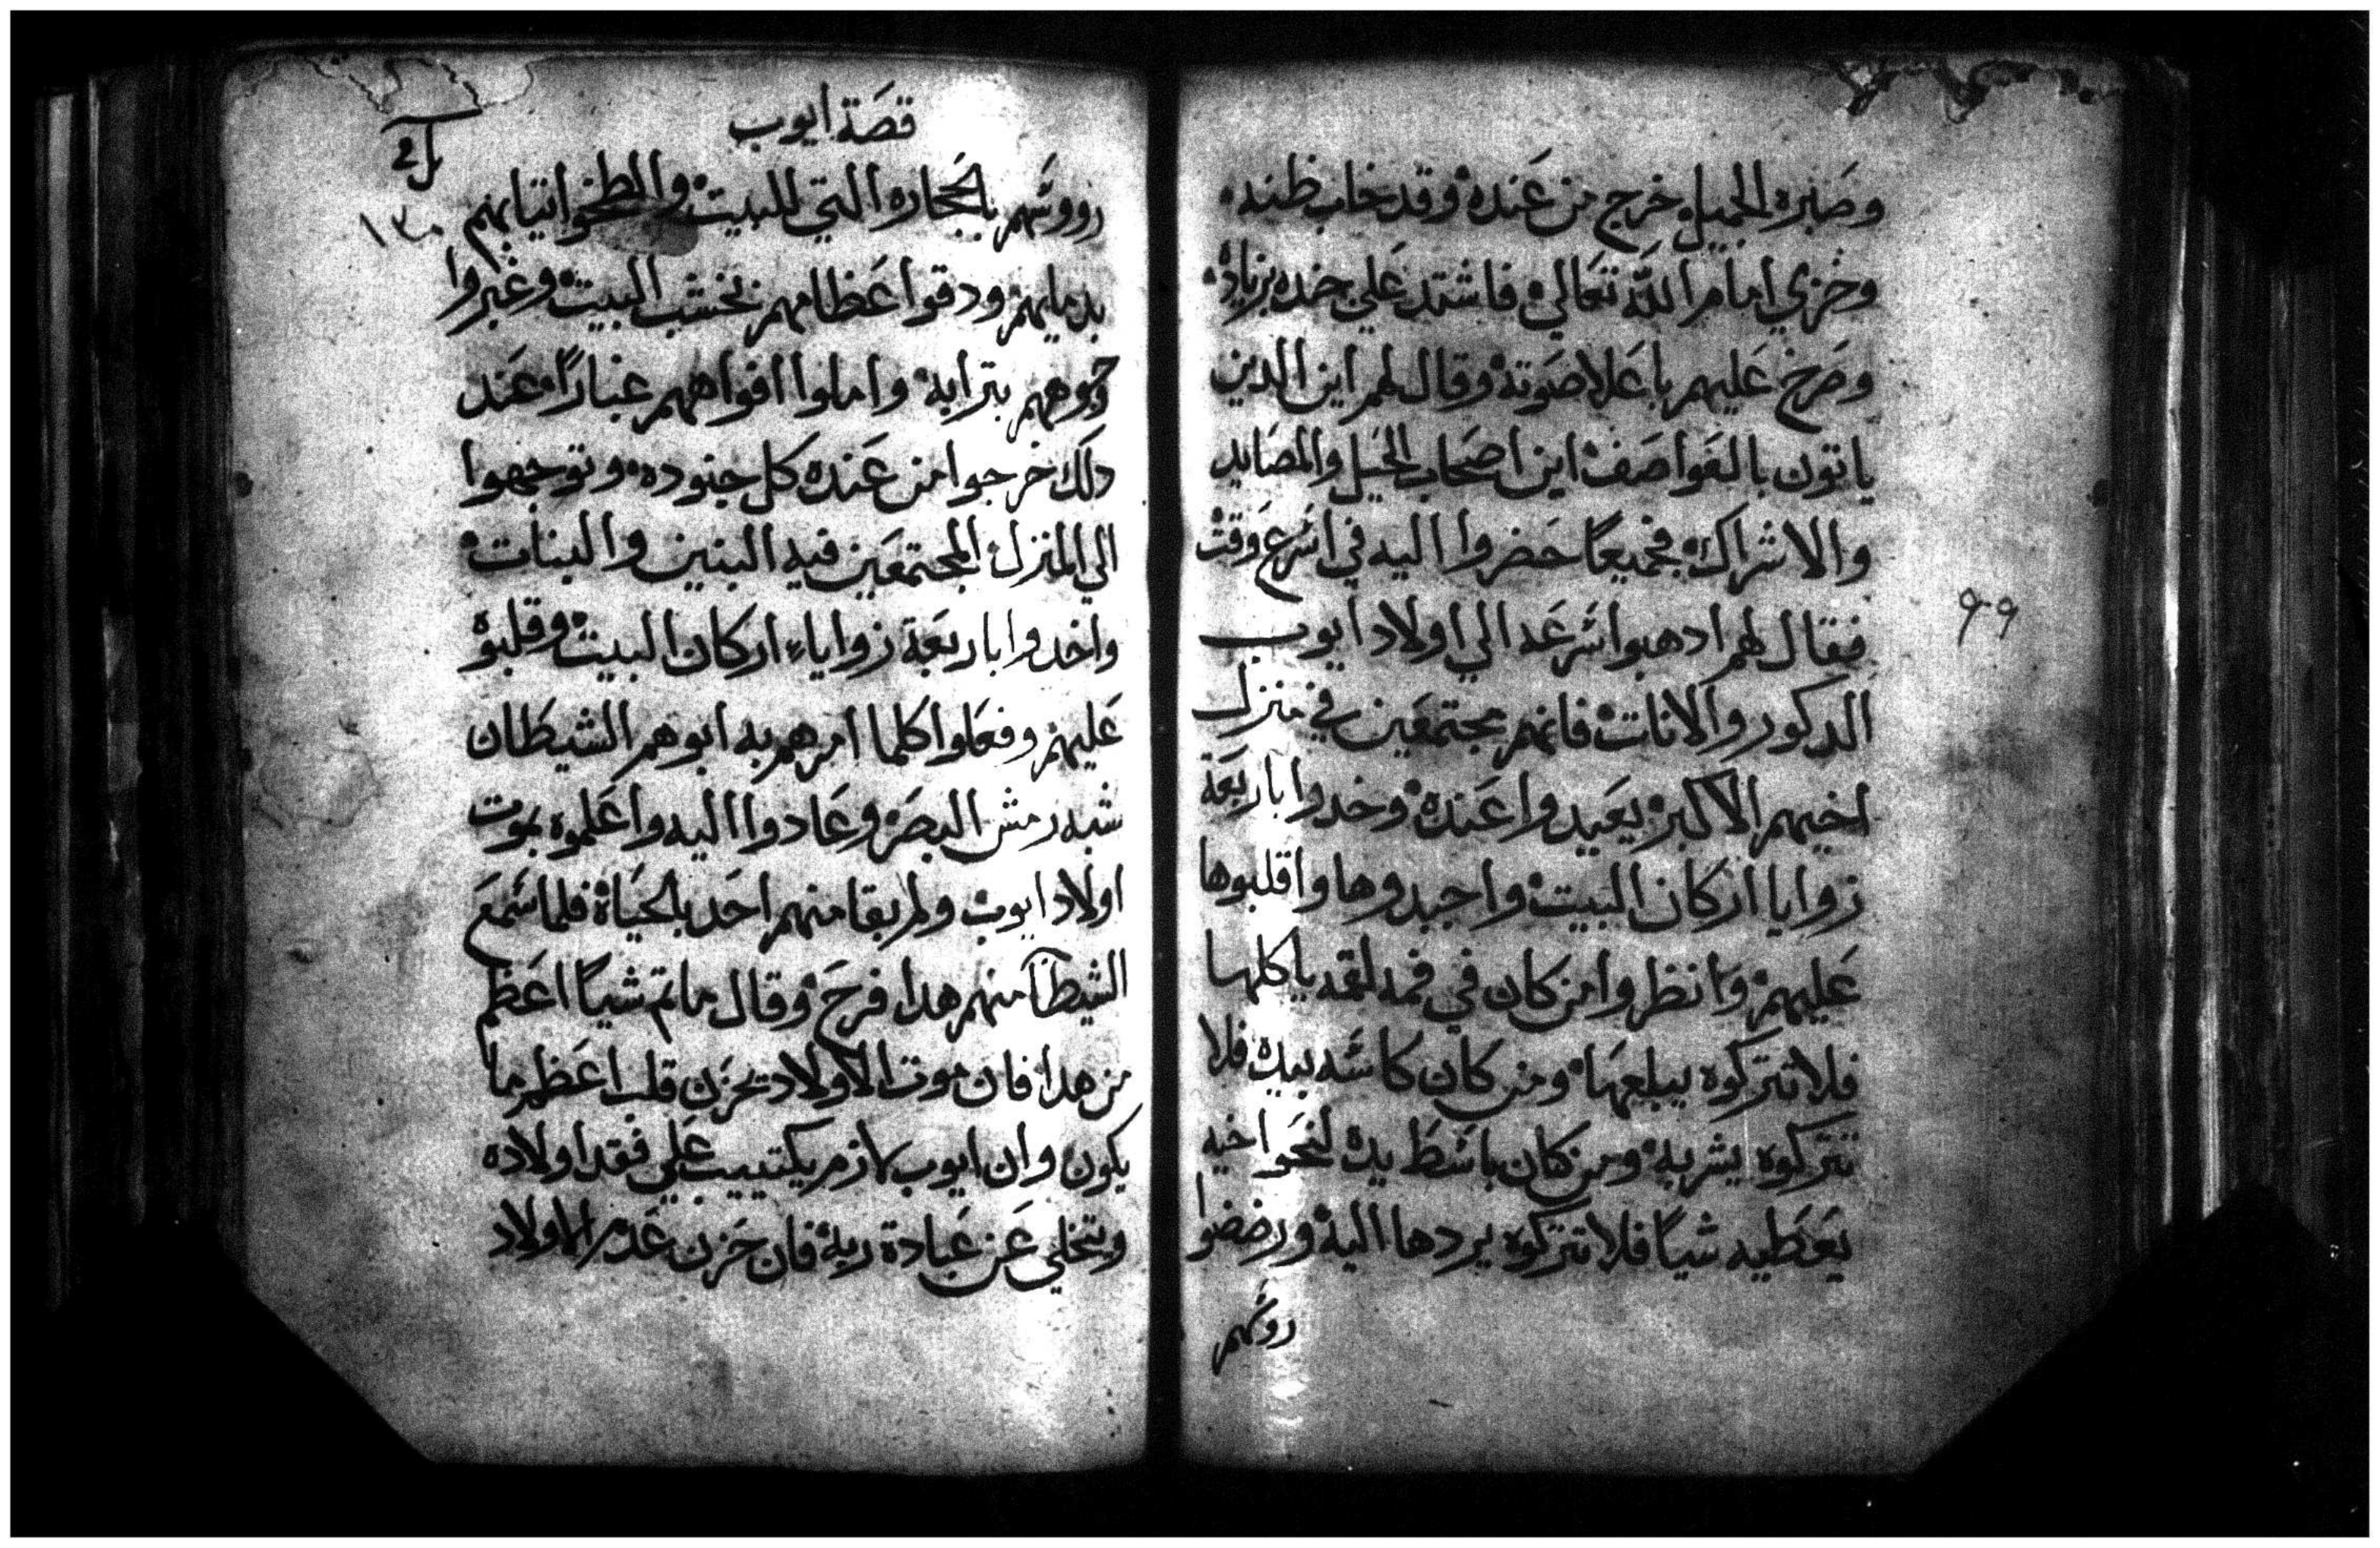 وصبره الجميل خرج من عنده وقد خاب ظنه
وخزي امام الله تعالي فاشتد علي جنده بزياده
وصرخ عليهم باعلا صوته وقال لهم اين الدين
ياتون بالعواصف اين اصحاب الحيل والمصايد
والاشراك فجميعًا حضروا اليه في اسرع وقت
فقال لهم ادهبوا سرعه الي اولاد ايوب
الدكور والانات فانهم مجتمعين في منزل
اخيهم الاكبر يعيدوا عنده وخدوا باربعة
زوايا اركان البيت واجبدوها واقلبوها
عليهم وانظروا من كان في فمه لقمه ياكلها
فلا تتركوه يبلعها ومن كان كاسه بيده فلا
تتركوه يشربه ومن كان باسط يده لنحو اخيه
يعطيه شياً فلا تتركوه يردها اليه ورضضوا
روسهم
٩٩
قصة ايوب
١٣٠
رووسهم بالحجاره التي للبيت والطخوا تيابهم
بدمايهم ودقوا عظامهم بخشب البيت وغبروا
وجوههم بترابه واملوا افواههم غبارًا عند
دلك خرجوا من عنده كل جنوده وتوجهوا
الي المنزل المجتمعين فيه البنين والبنات
واخدوا باربعة زواياء اركان البيت وقلبوه
عليهم وفعلوا كلما امرهم به ابوهم الشيطان
شبه رمش البصر وعادوا اليه واعلموه بموت
اولاد ايوب ولم بقا منهم احد بالحياة فلما سمع
الشيطان منهم هدا فرح وقال ما تم شياً اعظم
من هدا فان موت الاولاد يحزن قلب اعظم ما
يكون وان ايوب لازم يكتييب علي فقد اولاده
ويتخلي عن عبادة ربه فان حزن عدم الاولاد